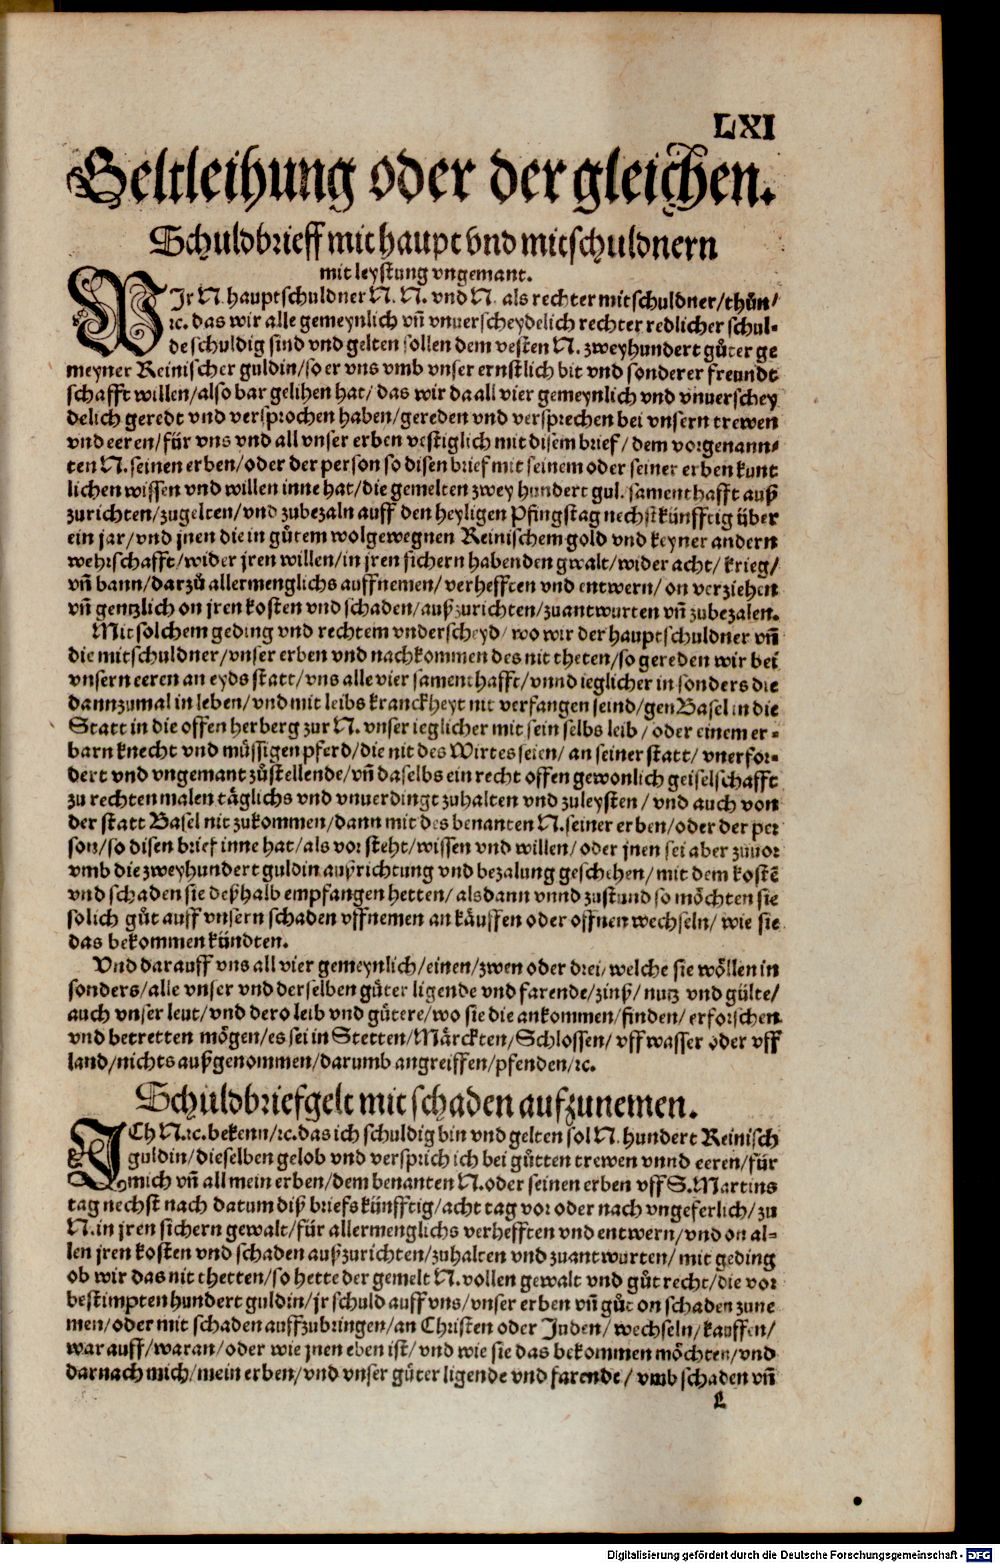 LXI
Geltleihung oder der gleichen.
Schuldbrieff mit haupt vnd mitschuldnern
mit leystung vngemant.
WJr N. hauptschuldner N. N. vnd N. als rechter mitschuldner/thůn/
ꝛc. das wir alle gemeynlich vñ vnuerscheydelich rechter redlicher schul-
de schuldig sind vnd gelten sollen dem vesten N. zweyhundert gůter ge
meyner Reinischer guldin/so er vns vmb vnser ernstlich bit vnd sonderer freundt
schafft willen/also bar gelihen hat/das wir da all vier gemeynlich vnd vnuerschey
delich geredt vnd versprochen haben/gereden vnd versprechen bei vnsern trewen
vnd eeren/für vns vnd all vnser erben vestiglich mit disem brief/dem vorgenann-
ten N. seinen erben/oder der person so disen brief mit seinem oder seiner erben kunt
lichen wissen vnd willen inne hat/die gemelten zwey hundert gul. sament hafft auß
zurichten/zugelten/vnd zubezaln auff den heyligen Pfingstag nechstkünfftig über
ein jar/vnd jnen die in gůtem wolgewegnen Reinischem gold vnd keyner andern
wehrschafft/wider jren willen/in jren sichern habenden gwalt/wider acht/krieg/
vñ bann/darzů allermenglichs auffnemen/verhefften vnd entwern/on verziehen
vñ gentzlich on jren kosten vnd schaden/außzurichten/zuantwurten vñ zubezalen.
Mit solchem geding vnd rechtem vnderscheyd/wo wir der hauptschuldner vñ
die mitschuldner/vnser erben vnd nachkommen des nit theten/so gereden wir bei
vnsern eeren an eyds statt/vns alle vier samenthafft/vnnd ieglicher in sonders die
dannzumal in leben/vnd mit leibs kranckheyt nit verfangen seind/gen Basel in die
Statt in die offen herberg zur N. vnser ieglicher mit sein selbs leib/oder einem er-
barn knecht vnd müssigen pferd/die nit des Wirtes seien/an seiner statt/vnerfor-
dert vnd vngemant zůstellende/vñ daselbs ein recht offen gewonlich geiselschafft
zu rechten malen täglichs vnd vnuerdingt zuhalten vnd zuleysten/vnd auch von
der statt Basel nit zukommen/dann mit des benanten N. seiner erben/oder der per
son/so disen brief inne hat/als vor steht/wissen vnd willen/oder jnen sei aber zuuor
vmb die zweyhundert guldin außrichtung vnd bezalung geschehen/mit dem kostẽ
vnd schaden sie deßhalb empfangen hetten/alsdann vnnd zustund so möchten sie
solich gůt auff vnsern schaden vffnemen an käuffen oder offnen wechseln/wie sie
das bekommen kündten.
Vnd darauff vns all vier gemeynlich/einen/zwen oder drei/welche sie wöllen in
sonders/alle vnser vnd derselben gůter ligende vnd farende/zinß/nutz vnd gülte/
auch vnser leut/vnd dero leib vnd gůtere/wo sie die ankommen/finden/erforschen
vnd betretten mögen/es sei in Stetten/Märckten/Schlossen/vff wasser oder vff
land/nichts außgenommen/darumb angreiffen/pfenden/ꝛc.
Schuldbriefgelt mit schaden aufzunemen.
JCh N.ꝛc. bekenn/ꝛc. das ich schuldig bin vnd gelten sol N. hundert Reinisch
guldin/dieselben gelob vnd versprich ich bei gůtten trewen vnnd eeren/für
mich vñ all mein erben/dem benanten N. oder seinen erben vff S. Martins
tag nechst nach datum diß briefs künfftig/acht tag vor oder nach vngeferlich/zu
N. in jren sichern gewalt/für allermenglichs verhefften vnd entwern/vnd on al-
len jren kosten vnd schaden außzurichten/zuhalten vnd zuantwurten/mit geding
ob wir das nit thetten/so hette der gemelt N. vollen gewalt vnd gůt recht/die vor
bestimpten hundert guldin/jr schuld auff vns/vnser erben vñ gůt on schaden zune
men/oder mit schaden auffzubringen/an Christen oder Juden/wechseln/kauffen/
war auff/waran/oder wie jnen eben ist/vnd wie sie das bekommen möchten/vnd
darnach mich/mein erben/vnd vnser gůter ligende vnd farende/vmb schaden vñ
L
Digitalisierung gefördert durch die Deutsche Forschungsgemeinschaft - DFG